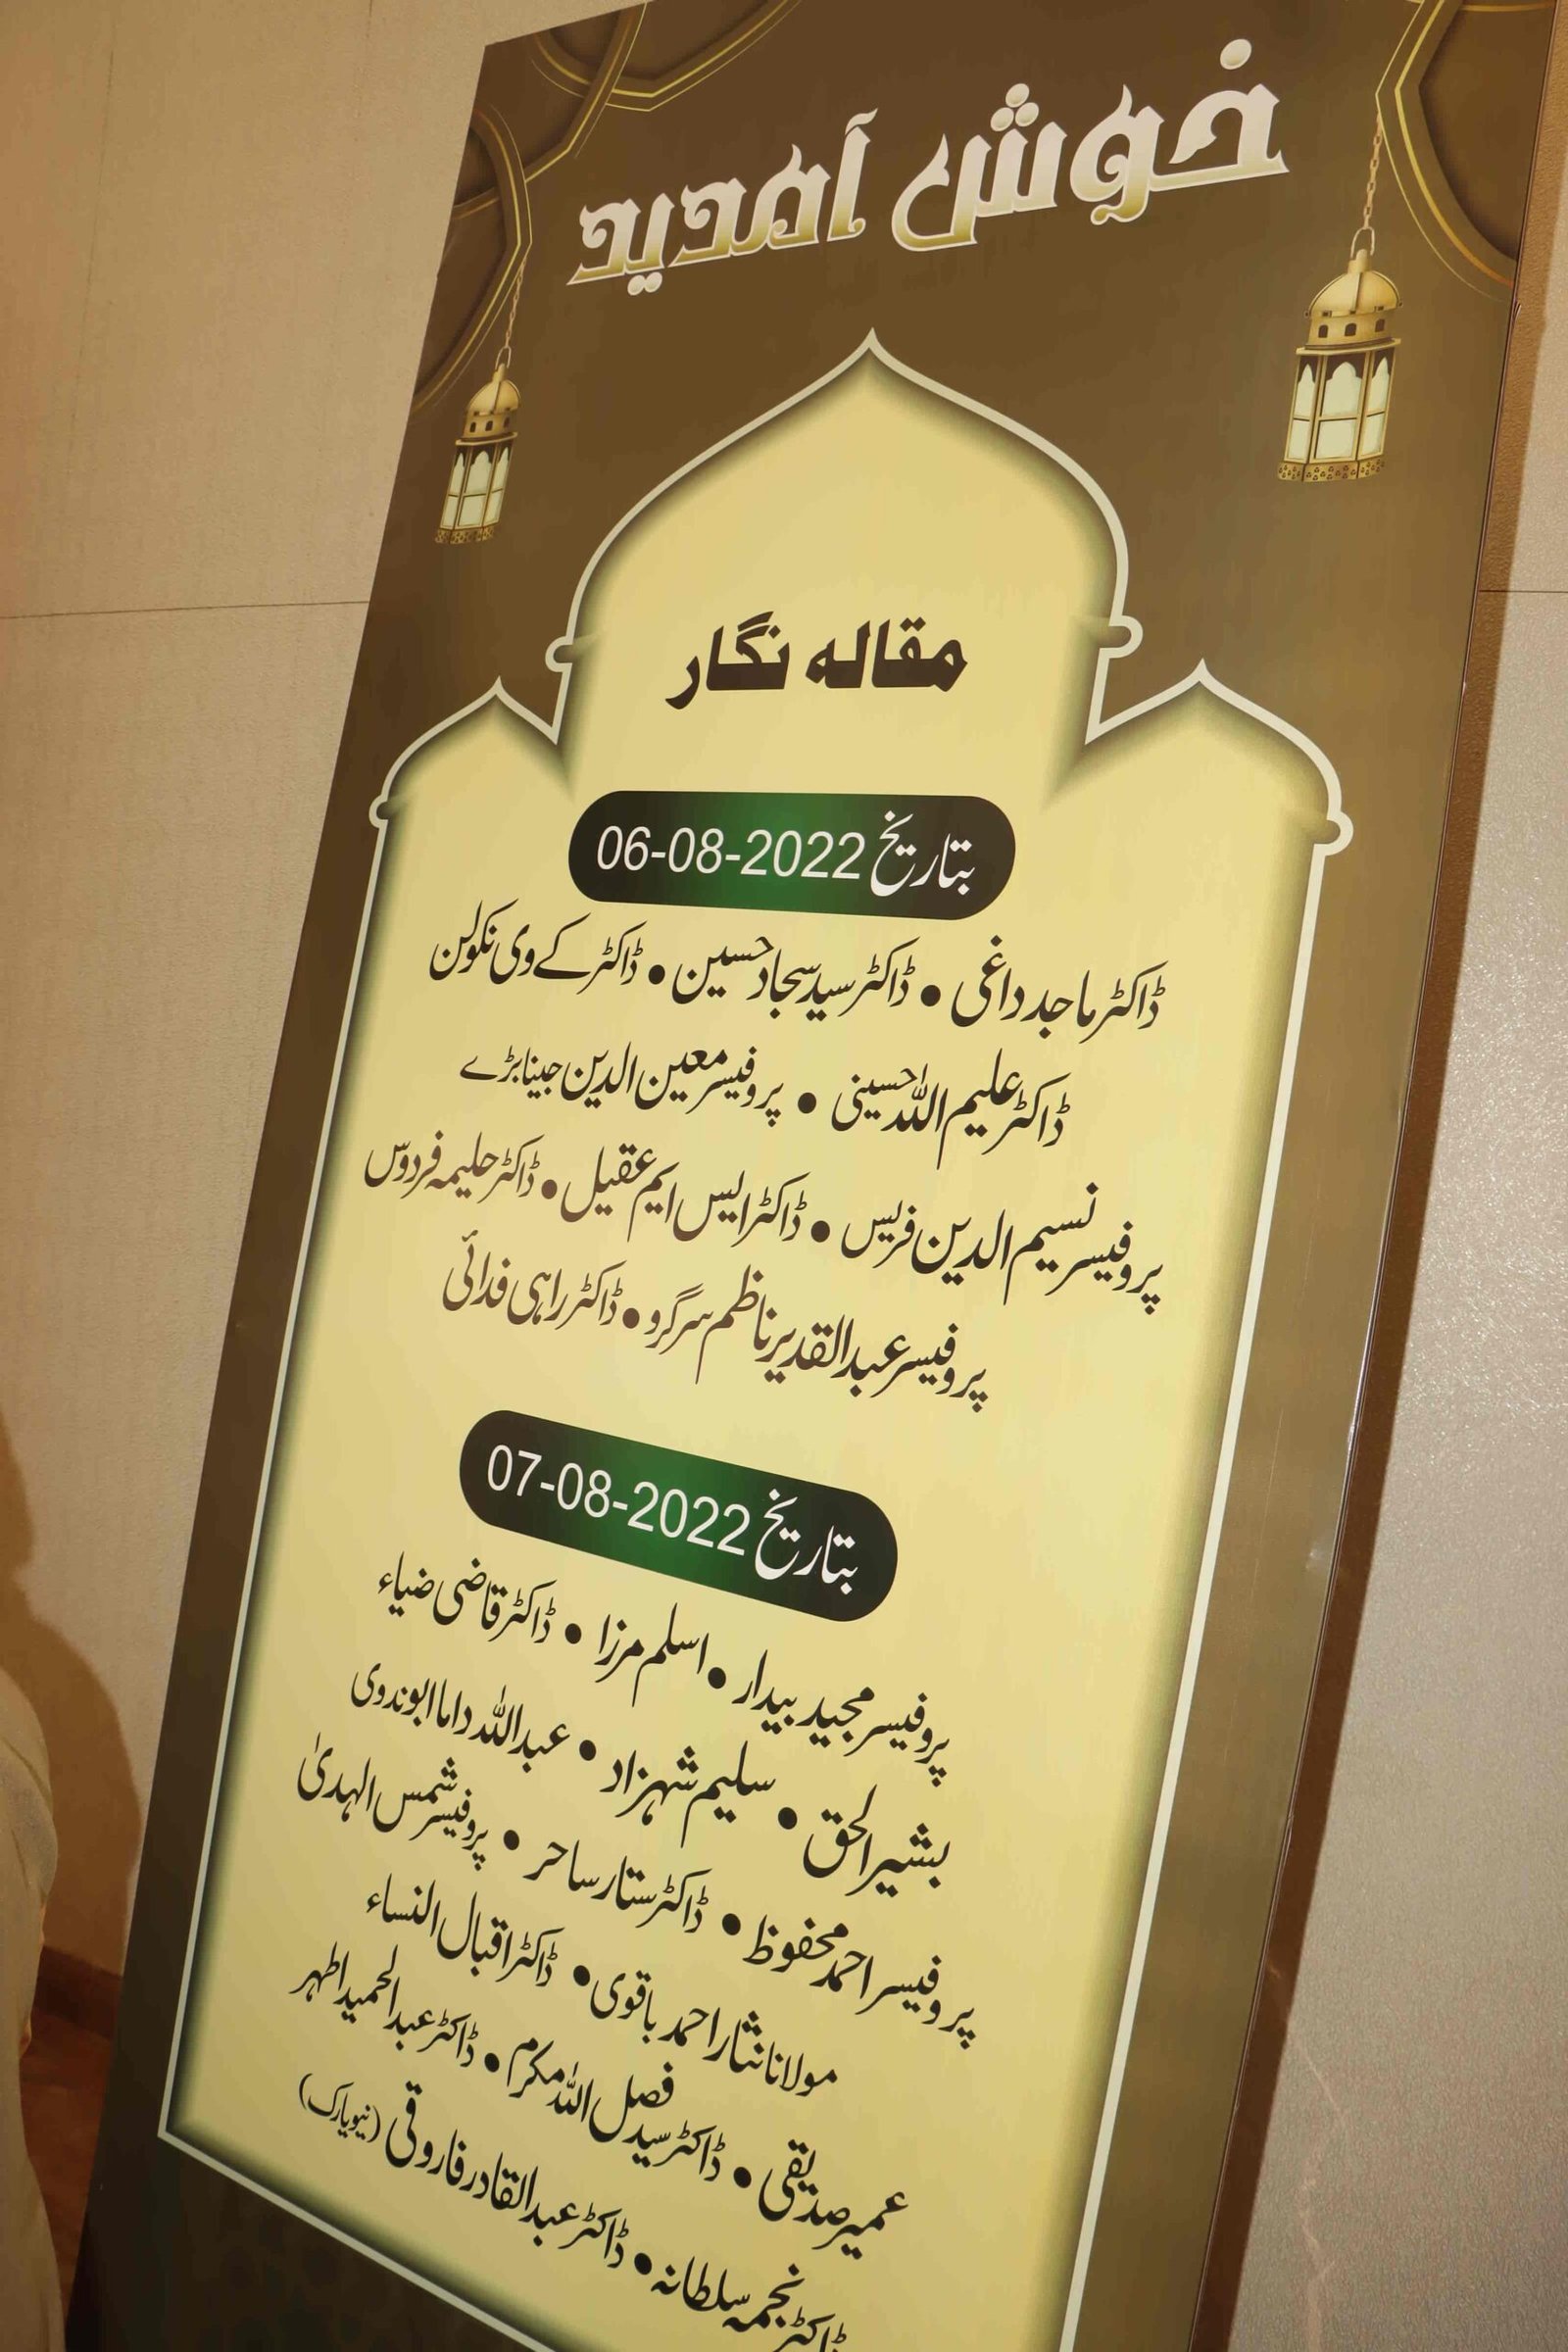 خوش آمدید
مقالہ نگار
بتاریخ 06-08-2022
ڈاکٹر ماجد داغی • ڈاکٹر سید سجاد حسین • ڈاکٹر کے وی نکولن
ڈاکٹر علیم اللہ حسینی • پروفیسر معین الدین جینابڑے
پروفیسر نسیم الدین فریس • ڈاکٹر ایس ایم عقیل • ڈاکٹر حلیمہ فردوس
پروفیسر عبدالقدیر ناظم سرگرو • ڈاکٹر راہی فدائی
بتاریخ 07-08-2022
پروفیسر مجید بیدار • اسلم مرزا • ڈاکٹر قاضی ضیاء
بشیر الحق • سلیم شہزاد • عبداللہ داما ابو ندوی
پروفیسر احمد محفوظ • ڈاکٹر ستار ساحر • پروفیسر شمس الہدیٰ
مولانا نثار احمد باقوی • ڈاکٹر اقبال النساء
عمیر صدیقی • ڈاکٹر سید فصل اللہ مکرم • ڈاکٹر عبدالحمید اطہر
ڈاکٹر نجمہ سلطانہ • ڈاکٹر عبدالقادر فاروقی (نیویارک)